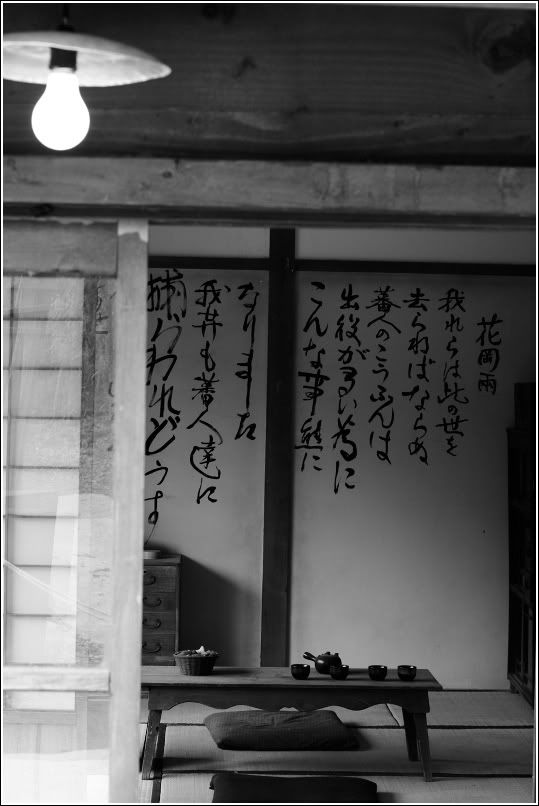 花岡兩
我れらは此の世を
去らねばならぬ
蕃人のこうふんは
出役が多い為に
こんな事態に
なりました
我等も蕃人達に
捕らわれどうす